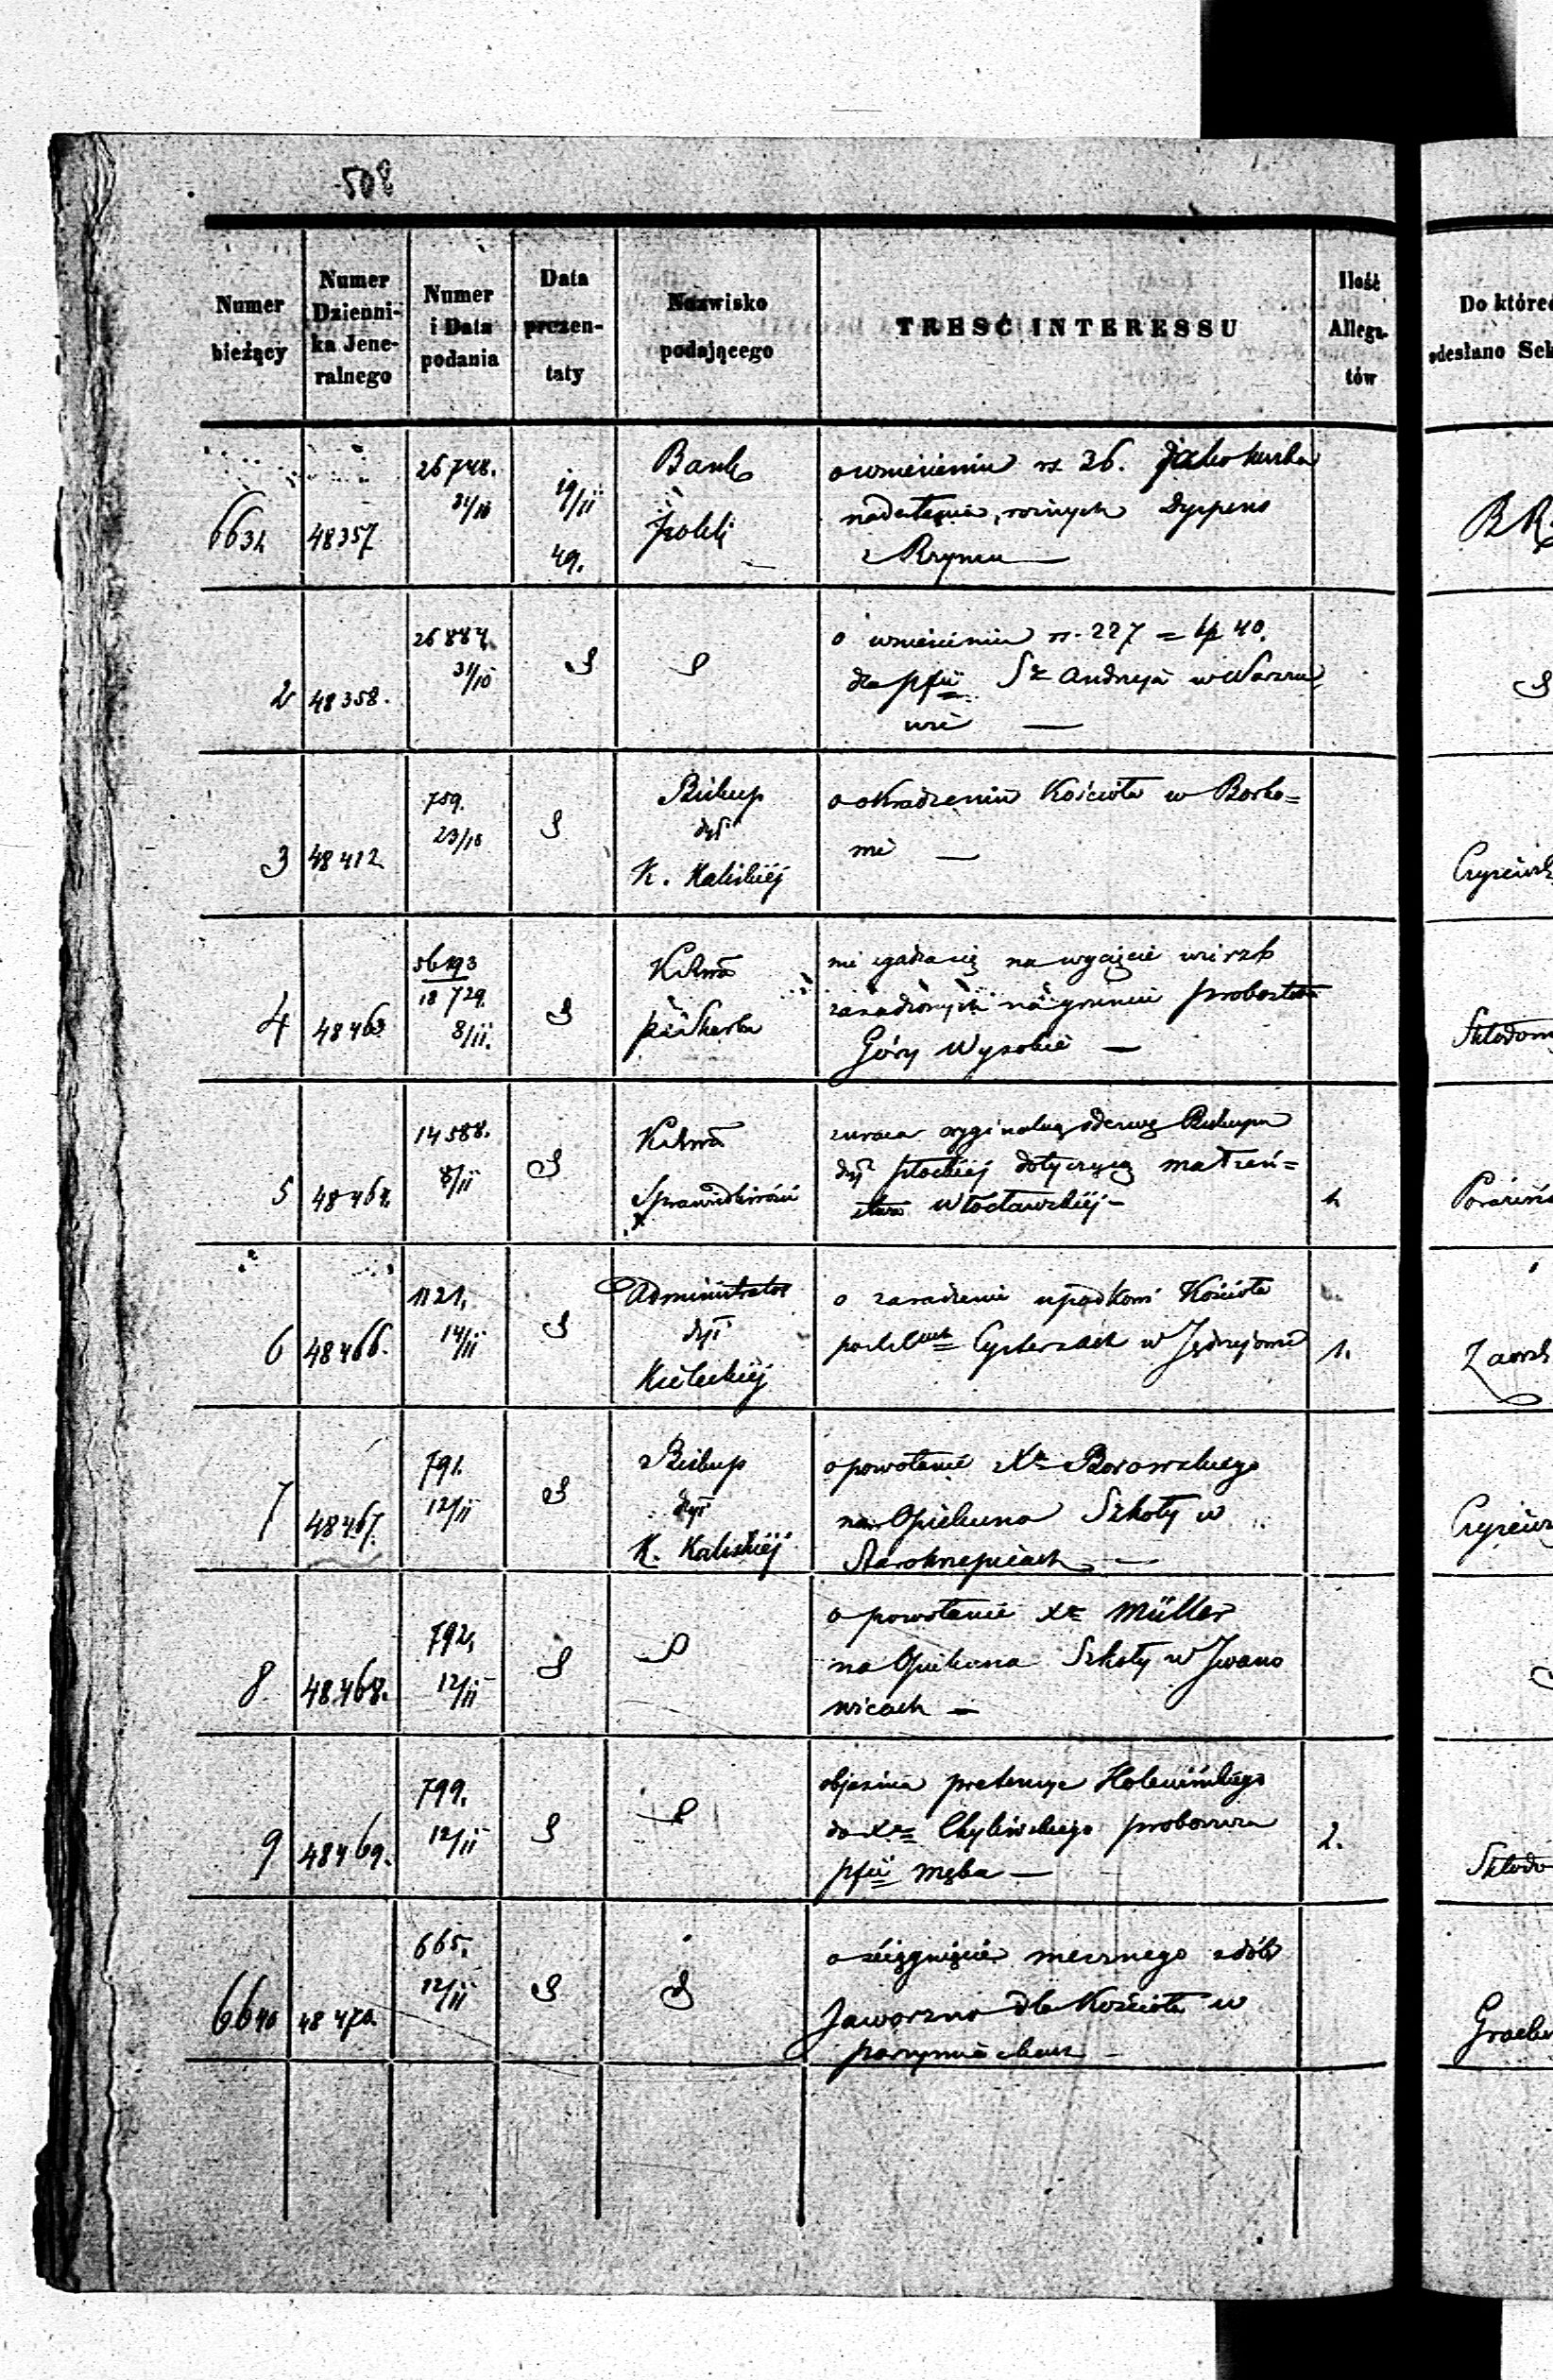 508
Numer bieżący
Numer Dzienni- ka Jene- ralnego
Numer i Data podania
Data prezen- taty
Nazwisko podającego
TREŚĆ INTERESSU
Ilość Allega- tów
Do które
odesłano Sek
48357
26748.
31/10
19/11
49.
Bank
Polski
o wniesieniu rs 36. jako
nadesłania, różnych Dyspens
z Rzymu —
BR
2 48358.
26884.
31/10
o wniesieniu rs. 227
dla pfii Sgo Andrzeja w Warsza
wie —
3 48412
759.
23/10
Biskup
dyi
K. Kaliskiéj
o okradzeniu Kościoła w Borko=
wie —
4 48463
18729.
8/11.
Kommā
Skarbu
nie zgadza się na wycięcie wierzb
zasadzonych na gruncie probostwa
Góry Wysokie —
5
14588.
8/11
Kommā
Sprawiedliwości
zwraca oryginalną odezwę Biskupa
dyi płockiéj dotyczącą małżeń=
stwa Włocławskiéj —
6 48466.
1121.
14/11
Administrator
dyi
Kieleckiéj
o zaradzenie upadkowi Kościoła
Cystersach w Jędrzejowie
1.
7 48467.
791.
12/11
Biskup
dyi
K. Kaliskiéj
o powołanie Xa Borowskiego
na Opiekuna Szkoły w
Starokrzepicach —
8 48468.
792.
12/11
o powołanie Xa Müller
na Opiekuna Szkoły w Iwano
wicach —
9 48469.
799.
12/11
objaśnia pretensye Holewińskiego
do Xa Chylińskiego proboszcza
pfii Męka —
2.
6640 48470
665.
12/11
o ściągnięcie mesznego z dóbr
Jaworzno dla Kościoła w